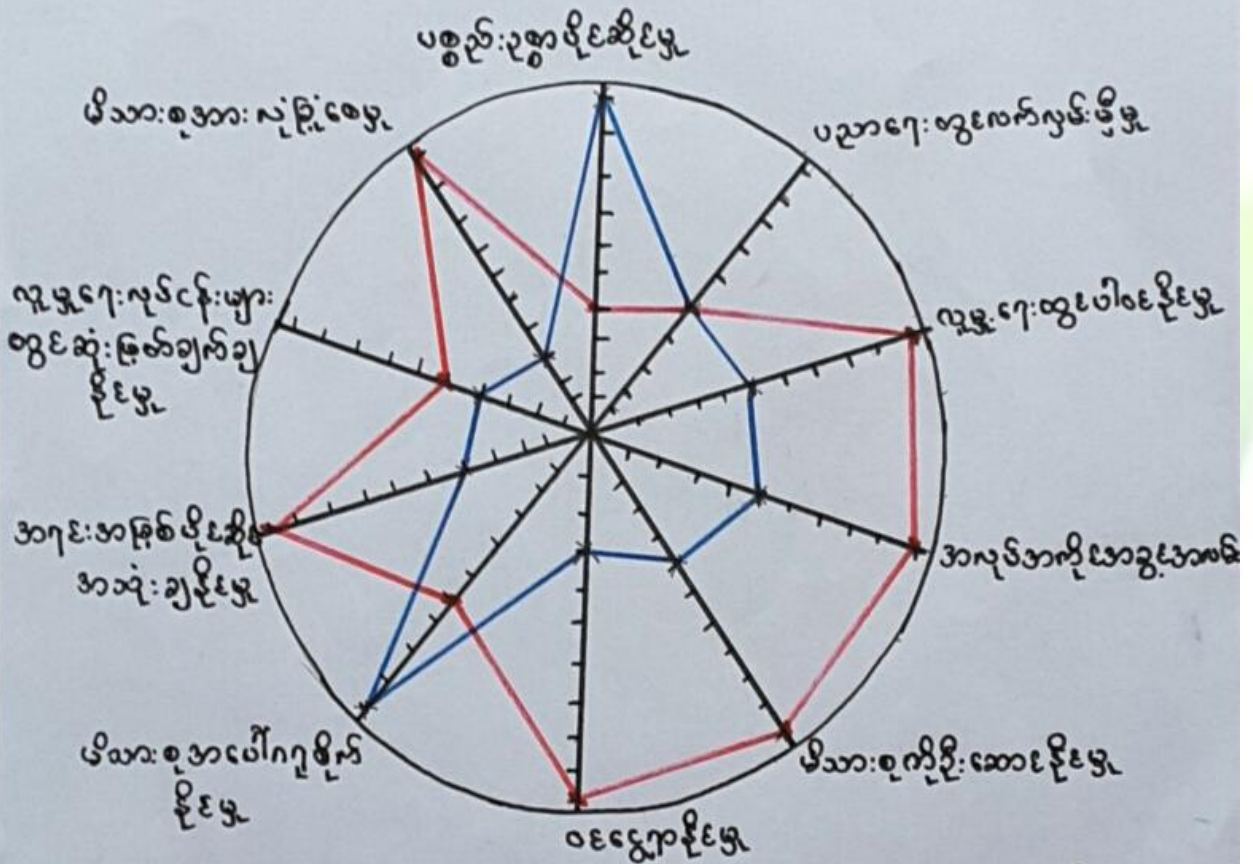 ပစ္စည်းဥစ္စာပိုင်ဆိုင်မှု
ပညာရေးတွင်လက်လှမ်းမှီမှု
လူမှုရေးတွင်ပါဝင်နိုင်မှု
အလုပ်အကိုင်အခွင့်အလမ်း
မိသားစုကိုဦးဆောင်နိုင်မှု
ဝင်ငွေရှာနိုင်မှု
မိသားစုအပေါ်ဂရုစိုက်
နိုင်မှု
အရင်းအမြစ်ပိုင်ဆိုင်
အသုံးချနိုင်မှု
လူမှုရေးလုပ်ငန်းများ
တွင်ဆုံးဖြတ်ချက်ချ
နိုင်မှု
မိသားစုအားလုံခြုံစေမှု